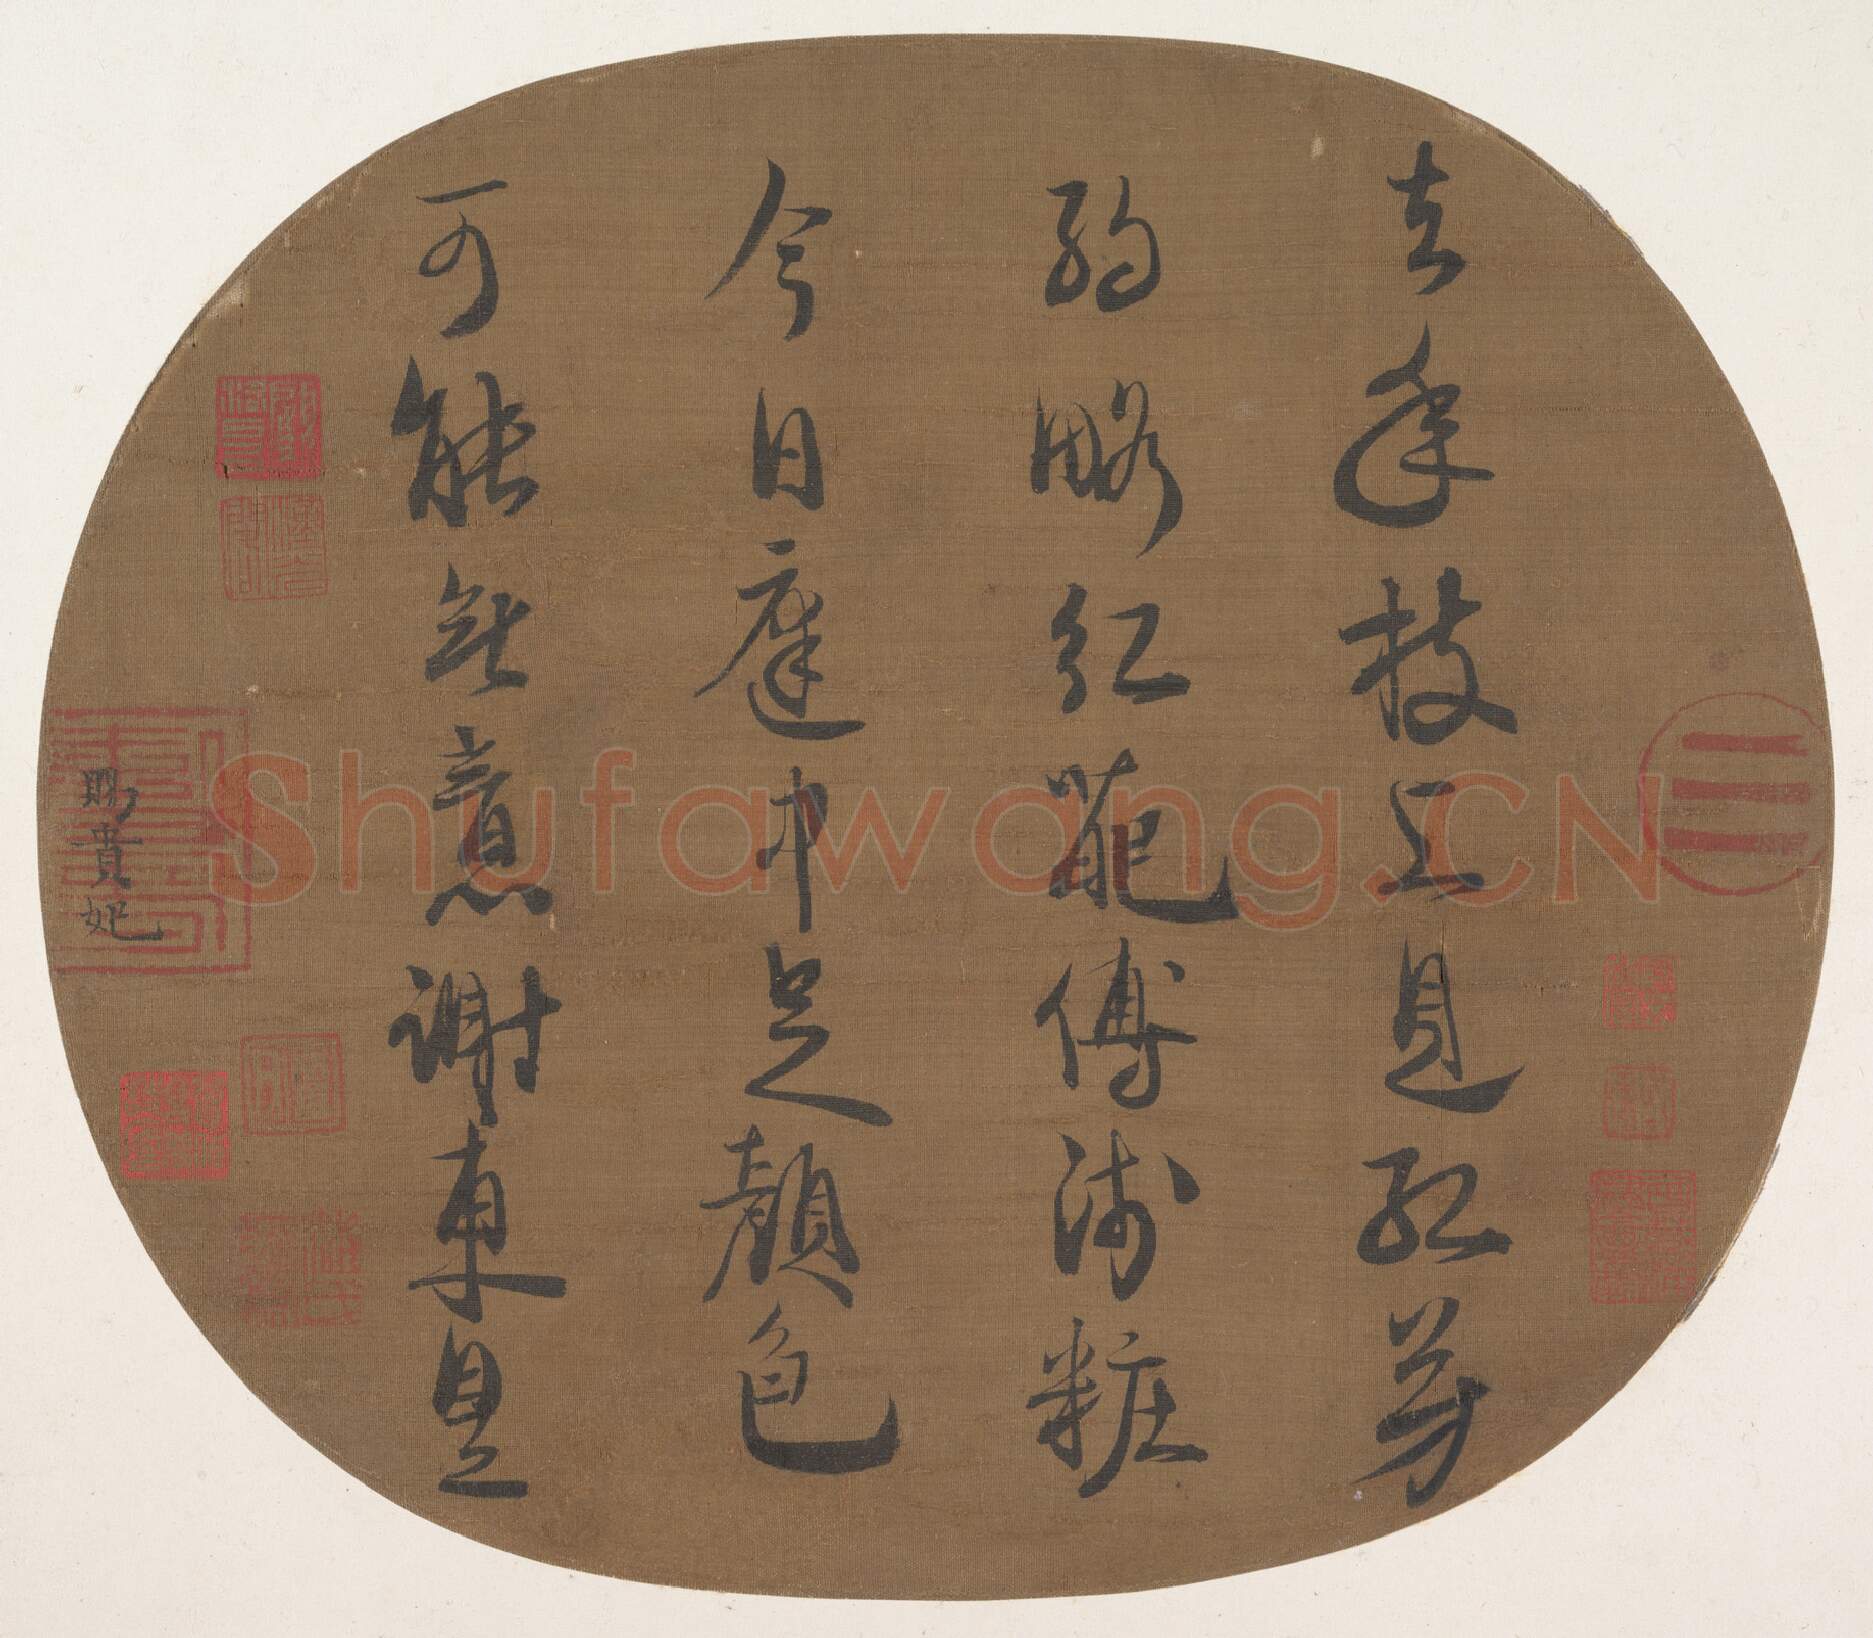 去年枝上見紅芳
約略紅葩傅淺粧
今日庭中足顏色
可能無意謝東皇
賜貴妃
Shufawang.CN